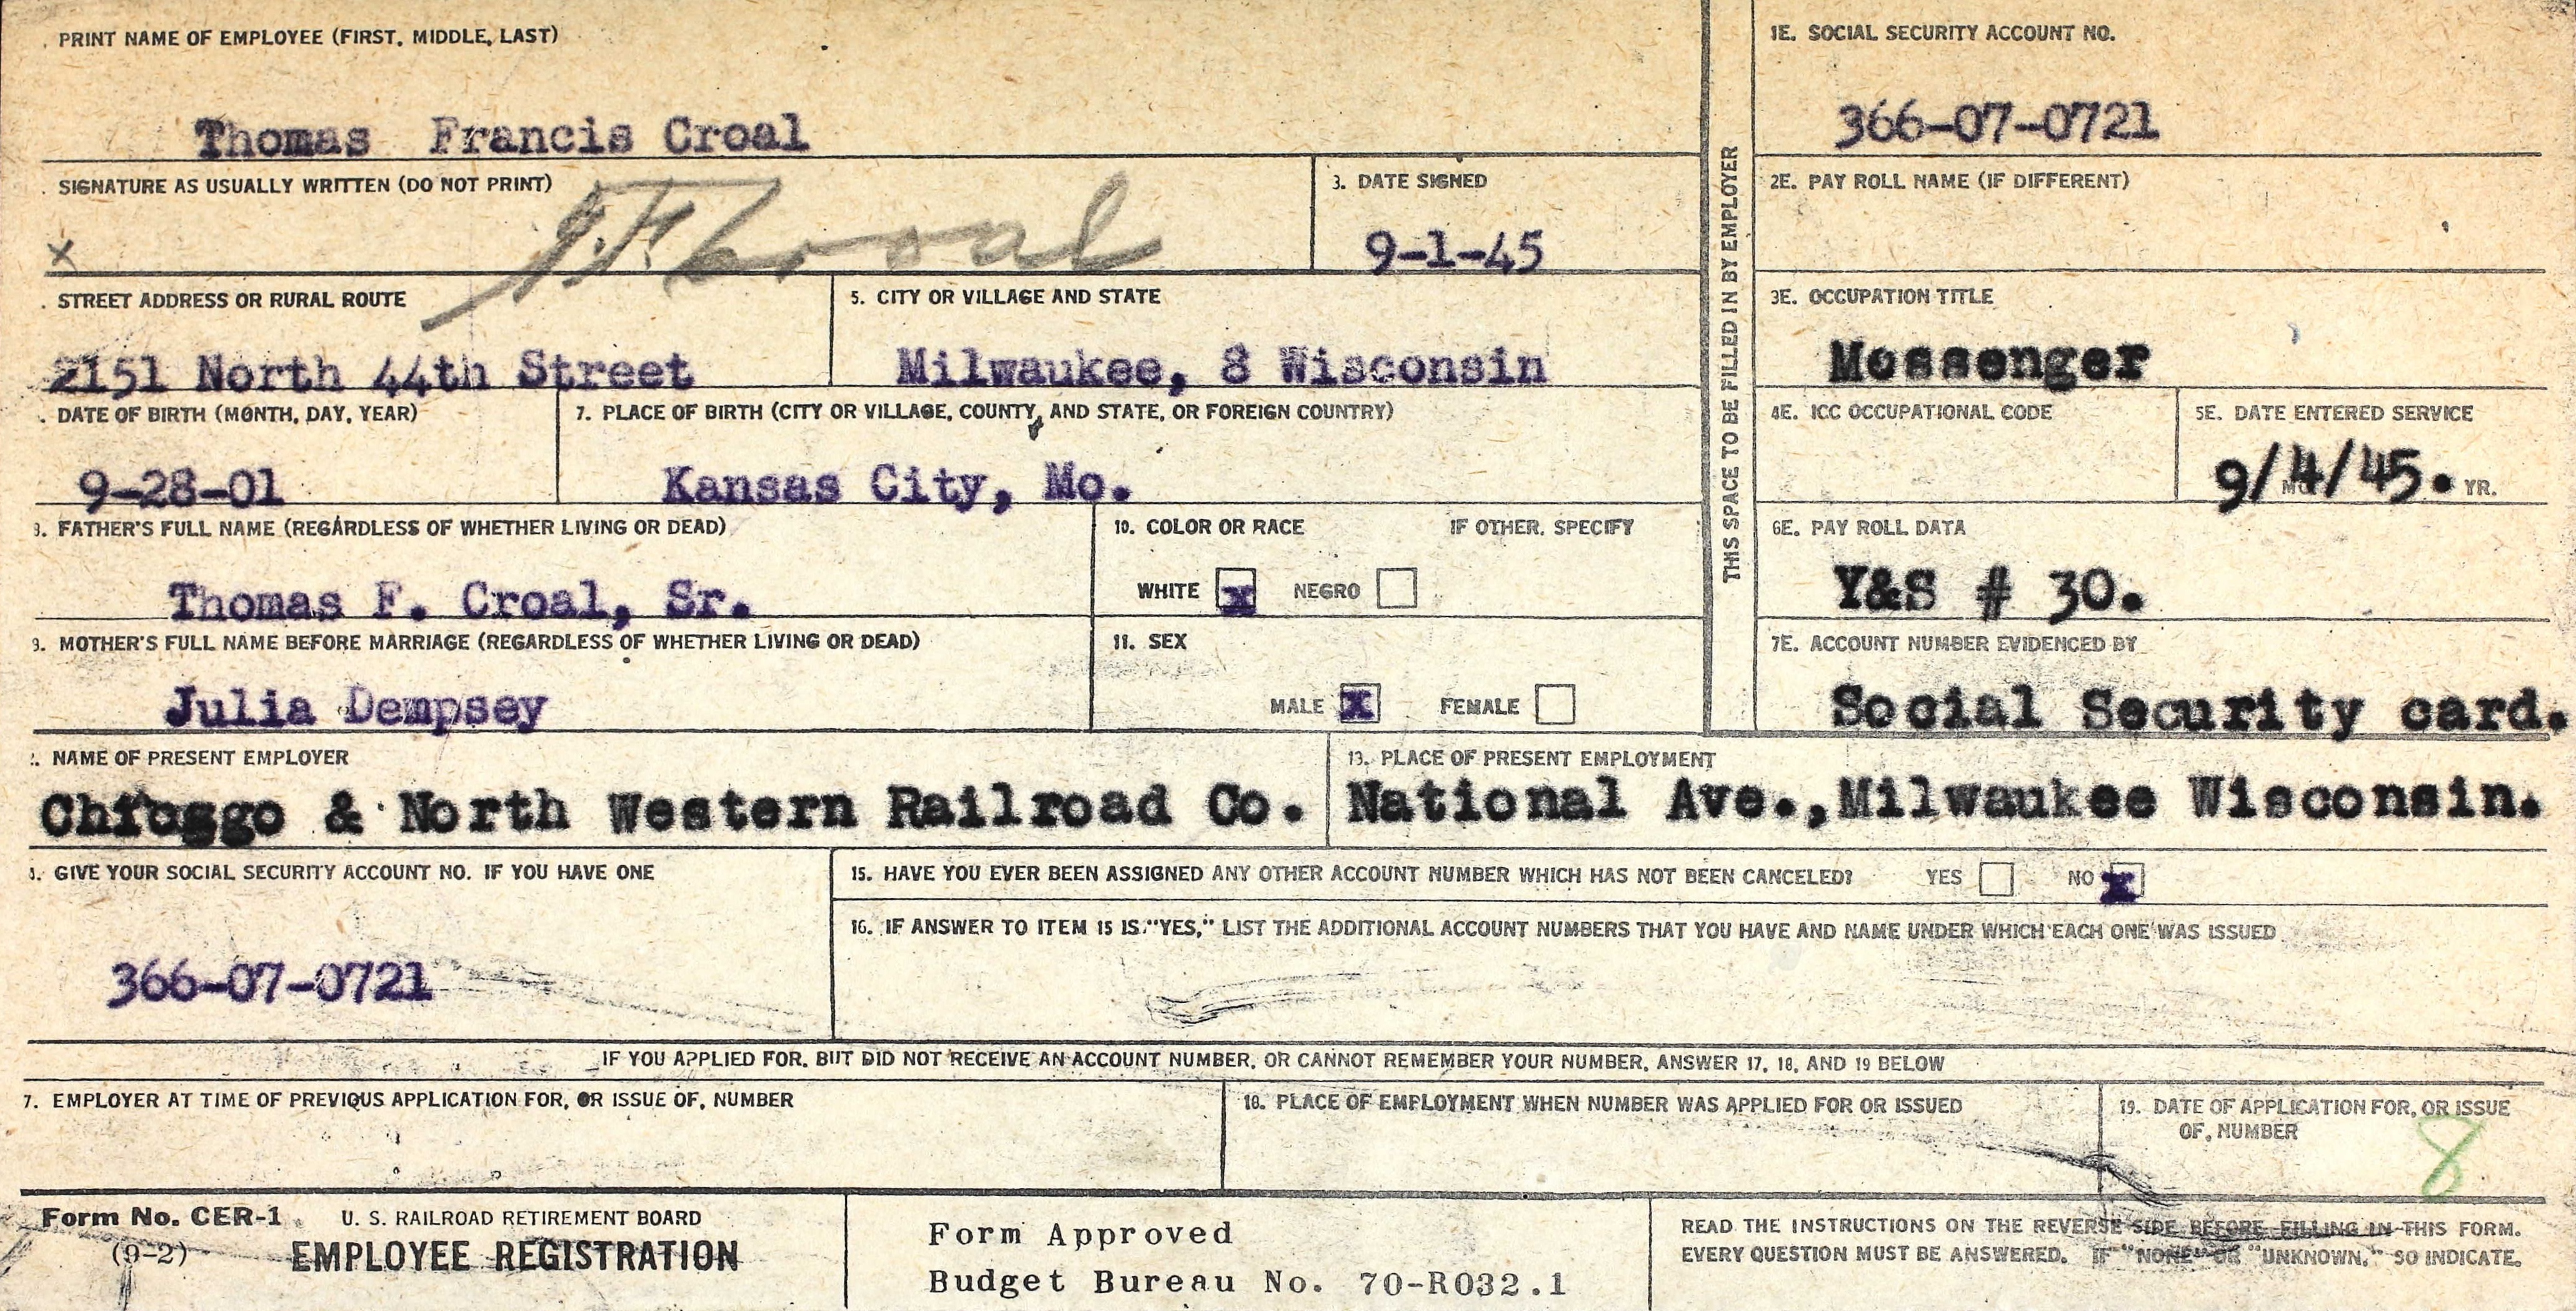 PRINT NAME OF EMPLOYEE (FIRST, MIDDLE, LAST)
Thomas Francis Croal
SIGNATURE AS USUALLY WRITTEN (DO NOT PRINT)
X T.F. Croal
3. DATE SIGNED
9-1-45
STREET ADDRESS OR RURAL ROUTE
2151 North 44th Street
5. CITY OR VILLAGE AND STATE
Milwaukee, 8 Wisconsin
DATE OF BIRTH (MONTH, DAY, YEAR)
9-28-01
7. PLACE OF BIRTH (CITY OR VILLAGE, COUNTY, AND STATE, OR FOREIGN COUNTRY)
Kansas City, Mo.
8. FATHER'S FULL NAME (REGARDLESS OF WHETHER LIVING OR DEAD)
Thomas F. Croal, Sr.
10. COLOR OR RACE IF OTHER, SPECIFY
WHITE x NEGRO
9. MOTHER'S FULL NAME BEFORE MARRIAGE (REGARDLESS OF WHETHER LIVING OR DEAD)
Julia Dempsey
11. SEX
MALE x FEMALE
THIS SPACE TO BE FILLED IN BY EMPLOYER
1E. SOCIAL SECURITY ACCOUNT NO.
366-07-0721
2E. PAY ROLL NAME (IF DIFFERENT)
3E. OCCUPATION TITLE
Messenger
4E. ICC OCCUPATIONAL CODE
5E. DATE ENTERED SERVICE
9/4/45. YR.
6E. PAY ROLL DATA
Y&S # 30.
7E. ACCOUNT NUMBER EVIDENCED BY
Social Security card.
NAME OF PRESENT EMPLOYER
Chicago & North Western Railroad Co.
13. PLACE OF PRESENT EMPLOYMENT
National Ave.,Milwaukee Wisconsin.
GIVE YOUR SOCIAL SECURITY ACCOUNT NO. IF YOU HAVE ONE
366-07-0721
15. HAVE YOU EVER BEEN ASSIGNED ANY OTHER ACCOUNT NUMBER WHICH HAS NOT BEEN CANCELED? YES NO x
16. IF ANSWER TO ITEM 15 IS "YES," LIST THE ADDITIONAL ACCOUNT NUMBERS THAT YOU HAVE AND NAME UNDER WHICH EACH ONE WAS ISSUED
IF YOU APPLIED FOR, BUT DID NOT RECEIVE AN ACCOUNT NUMBER, OR CANNOT REMEMBER YOUR NUMBER, ANSWER 17, 18, AND 19 BELOW
7. EMPLOYER AT TIME OF PREVIOUS APPLICATION FOR, OR ISSUE OF, NUMBER
18. PLACE OF EMPLOYMENT WHEN NUMBER WAS APPLIED FOR OR ISSUED
19. DATE OF APPLICATION FOR, OR ISSUE
OF, NUMBER
8
Form No. CER-1
(9-2)
U. S. RAILROAD RETIREMENT BOARD
EMPLOYEE REGISTRATION
Form Approved
Budget Bureau No. 70-R032.1
READ THE INSTRUCTIONS ON THE REVERSE SIDE BEFORE FILLING IN THIS FORM.
EVERY QUESTION MUST BE ANSWERED. IF "NONE" OR "UNKNOWN," SO INDICATE.